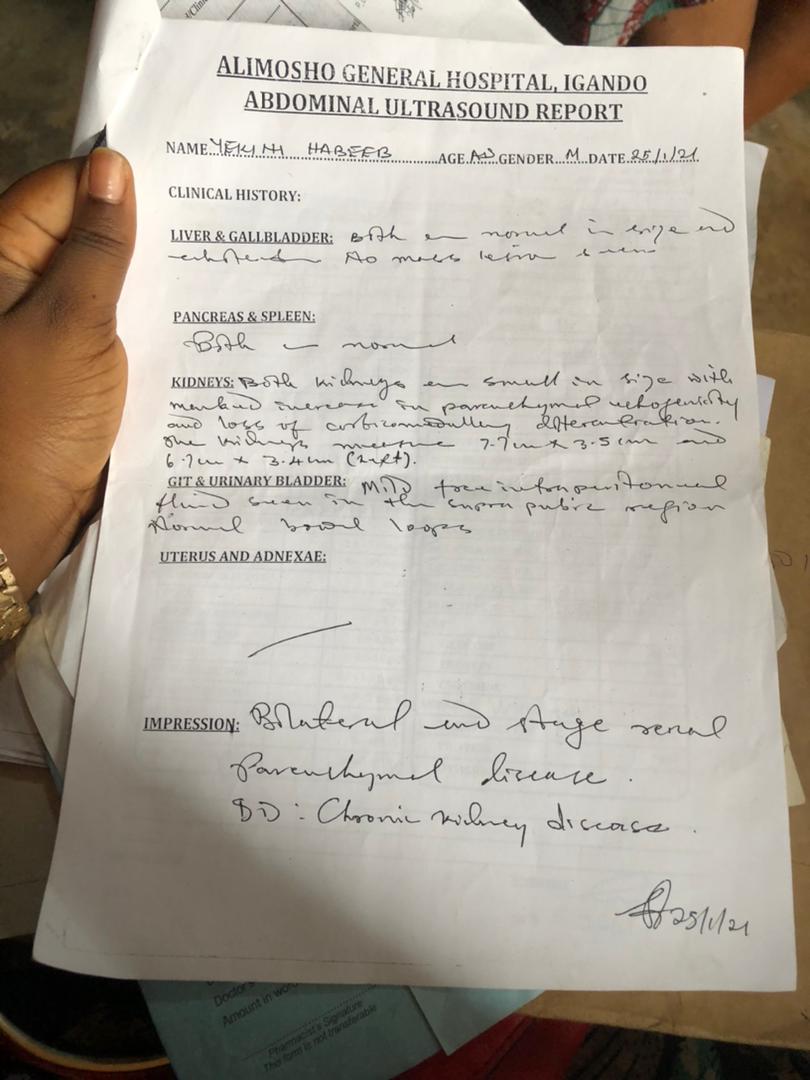 ALIMOSHO GENERAL HOSPITAL, IGANDO
ABDOMINAL ULTRASOUND REPORT
NAME YEKINI HABEEB AGE AD GENDER M DATE 25/1/21
CLINICAL HISTORY:
LIVER & GALLBLADDER: Both are normal in size and
No mass lesion is seen
PANCREAS & SPLEEN:
Both are normal
KIDNEYS: Both kidneys are small in size with
marked increase in parenchymal echogenicity
and loss of corticomedullary differentiation.
The kidneys measure 7.7cm x 3.5cm and
6.7cm x 3.4cm (Left).
GIT & URINARY BLADDER: Mild free intraperitoneal
fluid seen in the supra pubic region
Normal bowel loops
UTERUS AND ADNEXAE:
IMPRESSION: Bilateral end stage renal
Parenchymal disease.
DD: Chronic kidney disease.
25/1/21
Doctor's
Amount in
Pharmacist's Signature
This form is not transferable